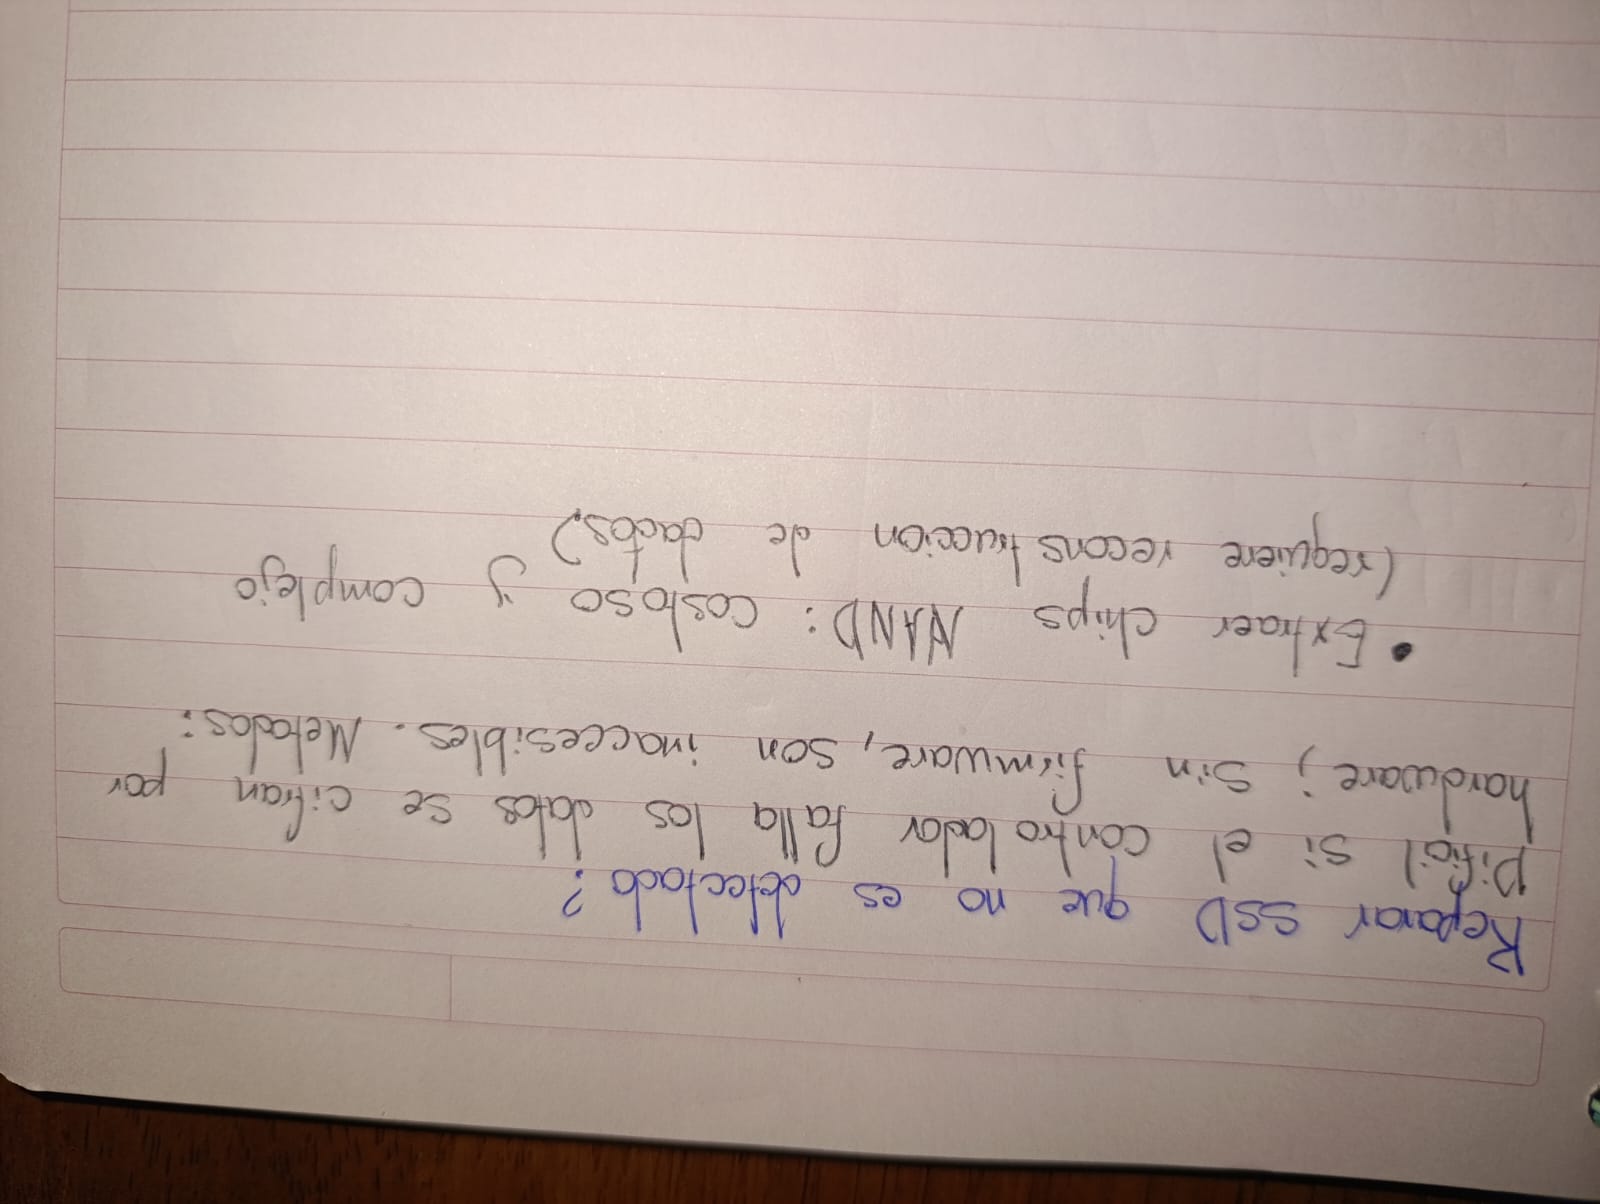 Reparar SSD que no es detectado?
Dificil si el controlador falla los datos se cifran por
hardware; sin firmware, son inaccesibles. Metodos:
• Extraer chips NAND: costoso y complejo
(requiere reconstruccion de dactos)